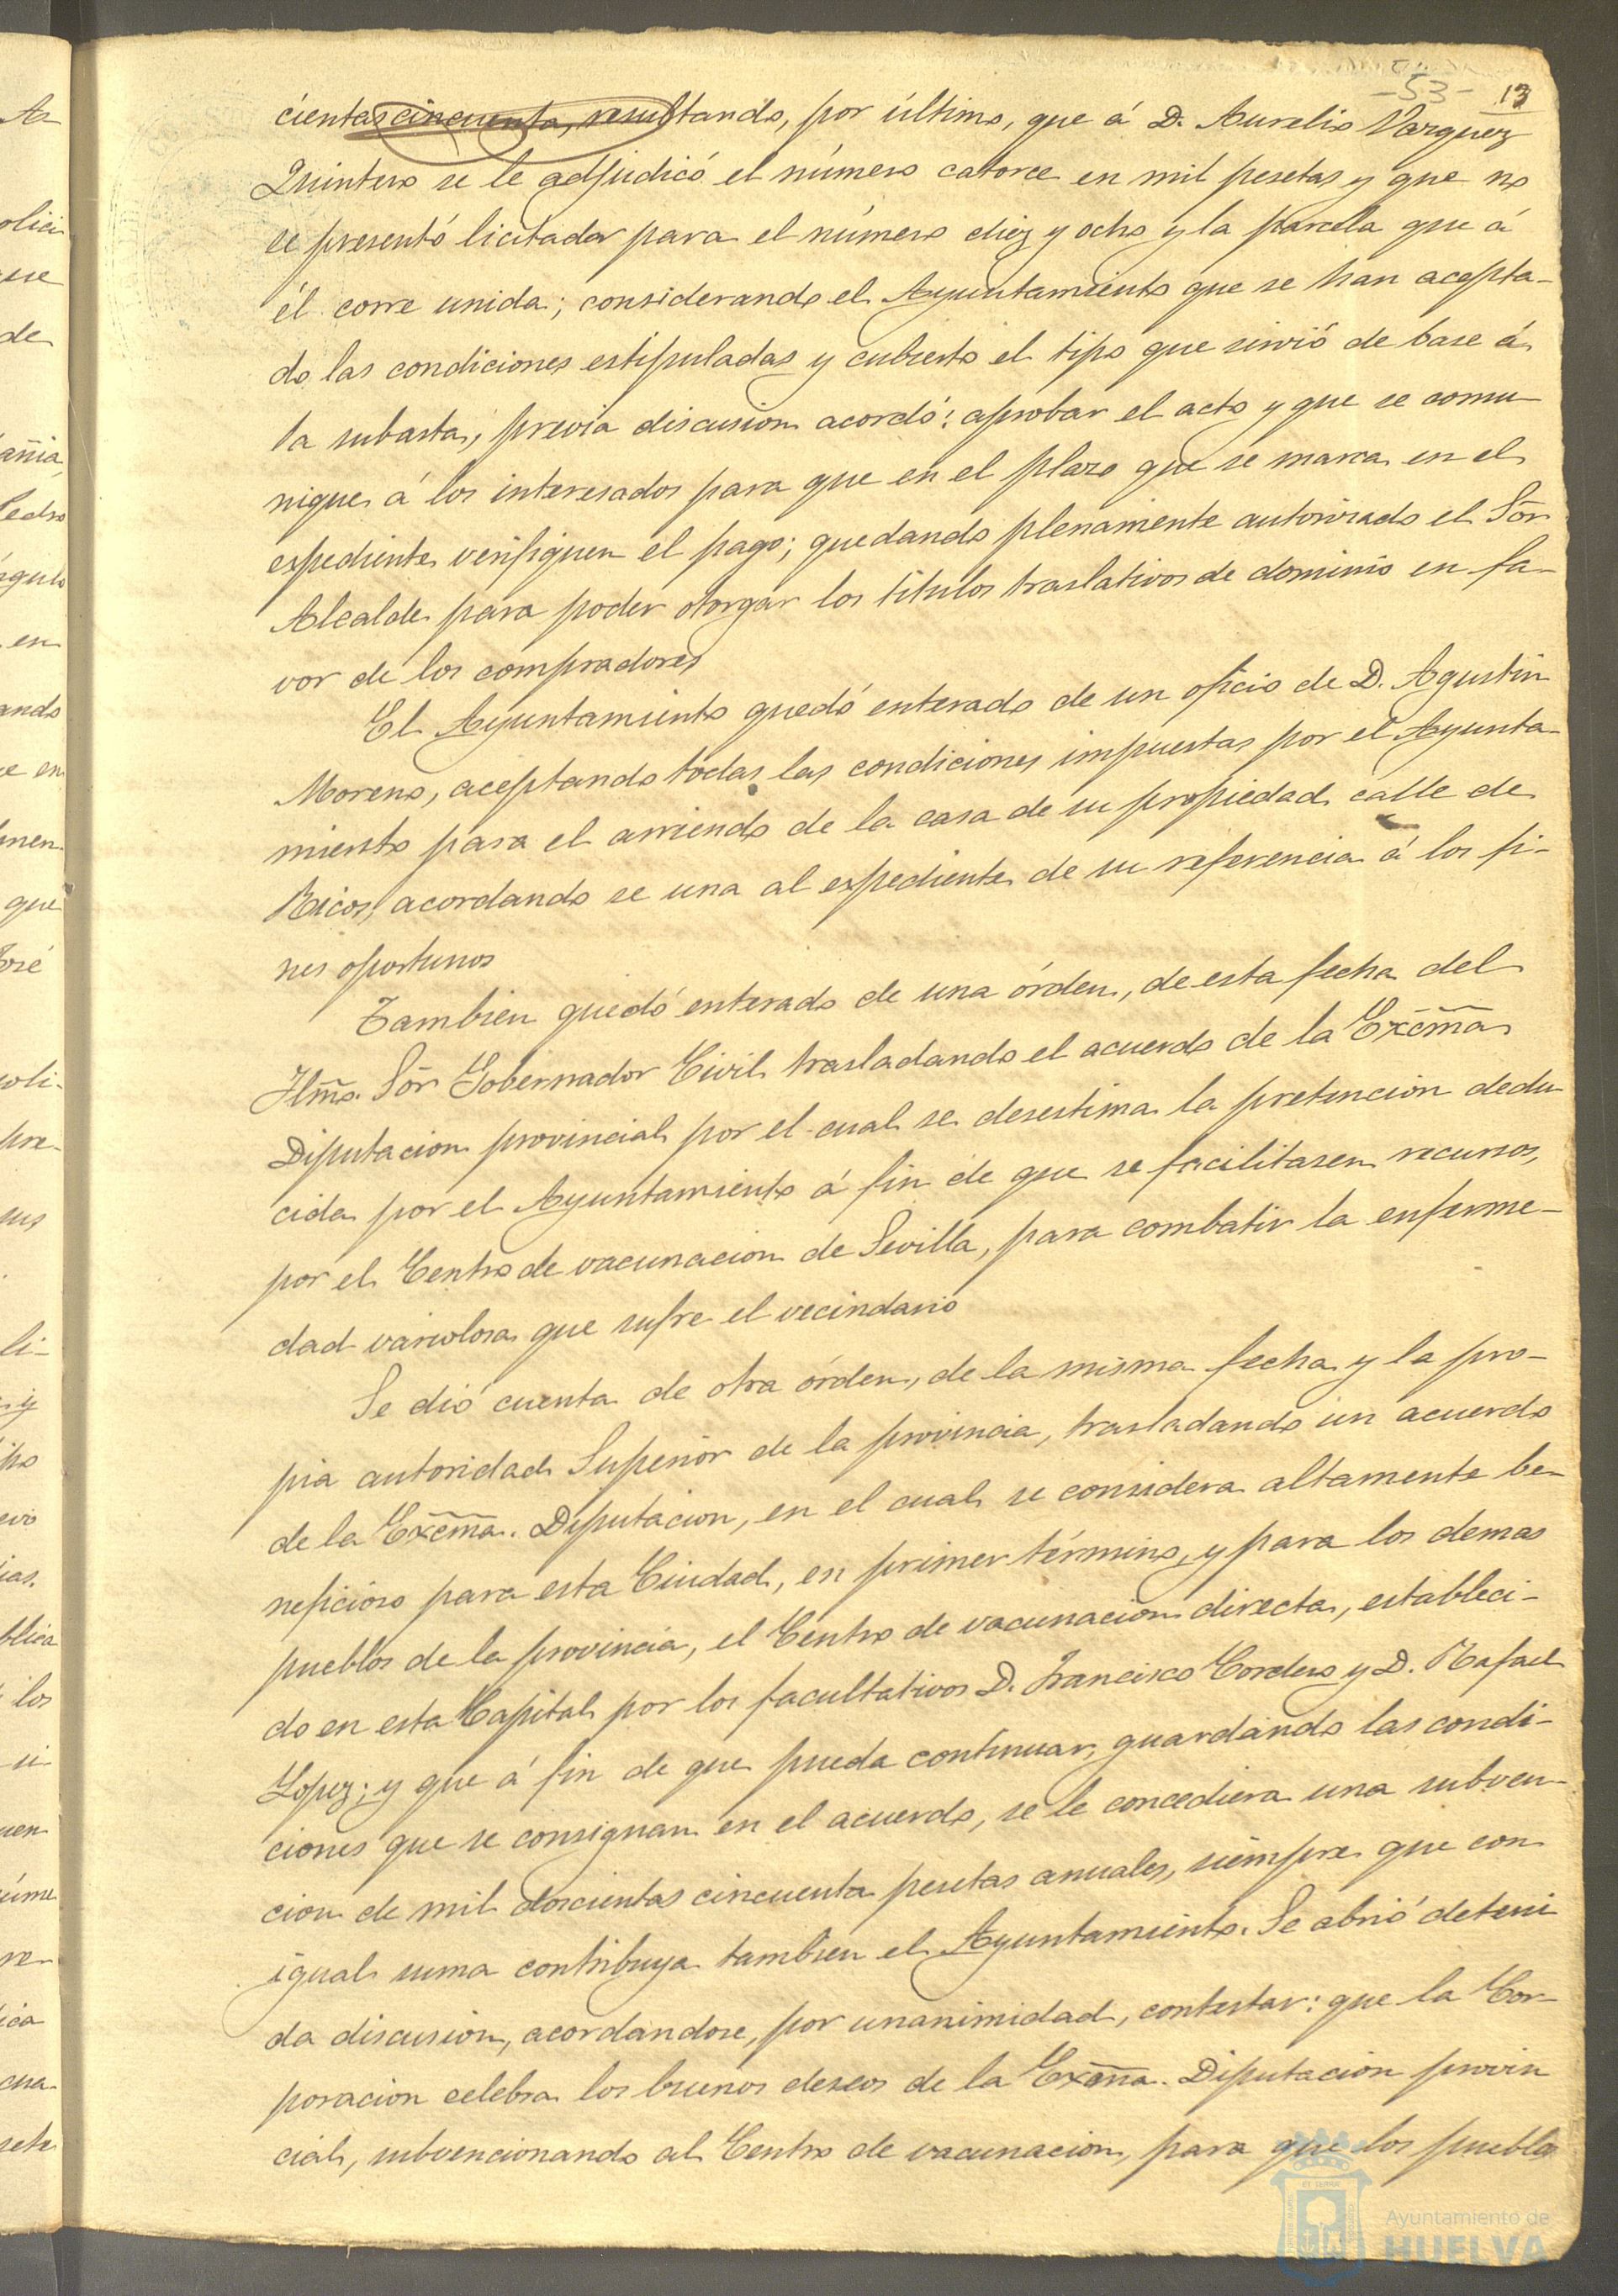 -53- 13
cientas cincuenta, resultando, por último, que á D. Aurelio Vazquez
Quintero se le adjudicó el número catorce en mil pesetas y que no
se presentó licitador para el número diez y ocho y la parcela que á
él corre unida; considerando el Ayuntamiento que se han acepta-
do las condiciones estipuladas y cubierto el tipo que sirvió de base á
la subasta, previa discusion acordó: aprobar el acto y que se comu-
nique á los interesados para que en el plazo que se marca en el
expediente verifiquen el pago; quedando plenamente autorizado el Sor
Alcalde para poder otorgar los titulos traslativos de dominio en fa-
vor de los compradores
El Ayuntamiento quedó enterado de un oficio de D. Agustin
Moreno, aceptando todas las condiciones impuestas por el Ayunta-
miento para el arriendo de la casa de su propiedad calle de
Ricos, acordando se una al expediente de su referencia á los fi-
nes oportunos
Tambien quedó enterado de una órden, de esta fecha del
Ilmo. Sor Gobernador Civil trasladando el acuerdo de la Excma
Diputacion provincial por el cual se desestima la pretencion dedu-
cida por el Ayuntamiento á fin de que se facilitasen recursos,
por el Centro de vacunacion de Sevilla, para combatir la enferme-
dad variolosa que sufre el vecindario
Se dió cuenta de otra órden, de la misma fecha y la pro-
pia autoridad Superior de la provincia, trasladando un acuerdo
de la Excma. Diputacion, en el cual se considera altamente be-
neficioso para esta Ciudad, en primer término, y para los demas
pueblos de la provincia, el Centro de vacunacion directa, estableci-
do en esta Capital por los facultativos D. Francisco Cordero y D. Rafael
Lopez; y que á fin de que pueda continuar, guardando las condi-
ciones que se consignan en el acuerdo, se le concediera una subven-
cion de mil doscientas cincuenta pesetas anuales, siempre que con
igual suma contribuya tambien el Ayuntamiento. Se abrió deteni
da discusion, acordandose, por unanimidad, contestar: que la Cor-
poracion celebra los buenos deseos de la Excma. Diputacion provin
cial, subvencionando al Centro de vacunacion, para que los pueblos
Ayuntamiento de
HUELVA